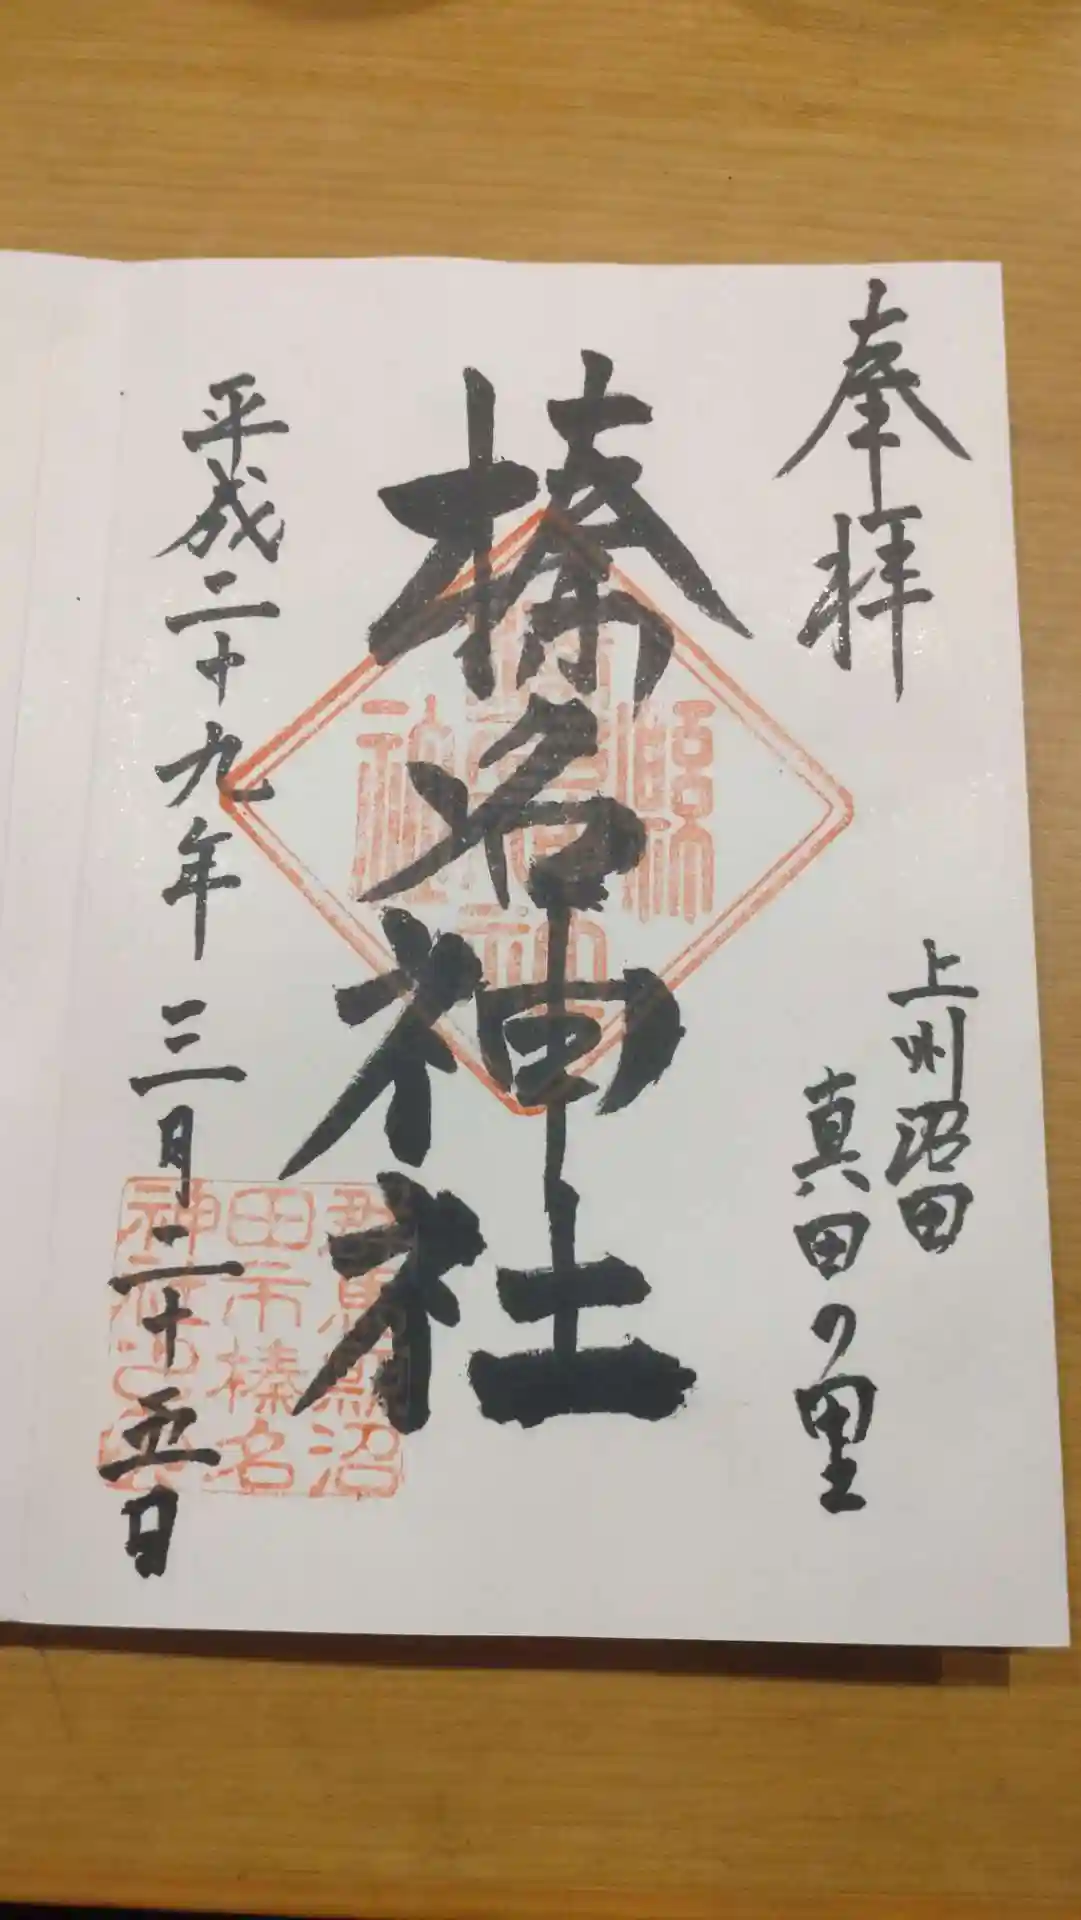 奉拝
上州沼田
真田の里
榛名神社
平成二十九年三月二十五日
群馬縣沼
田市榛名
神社